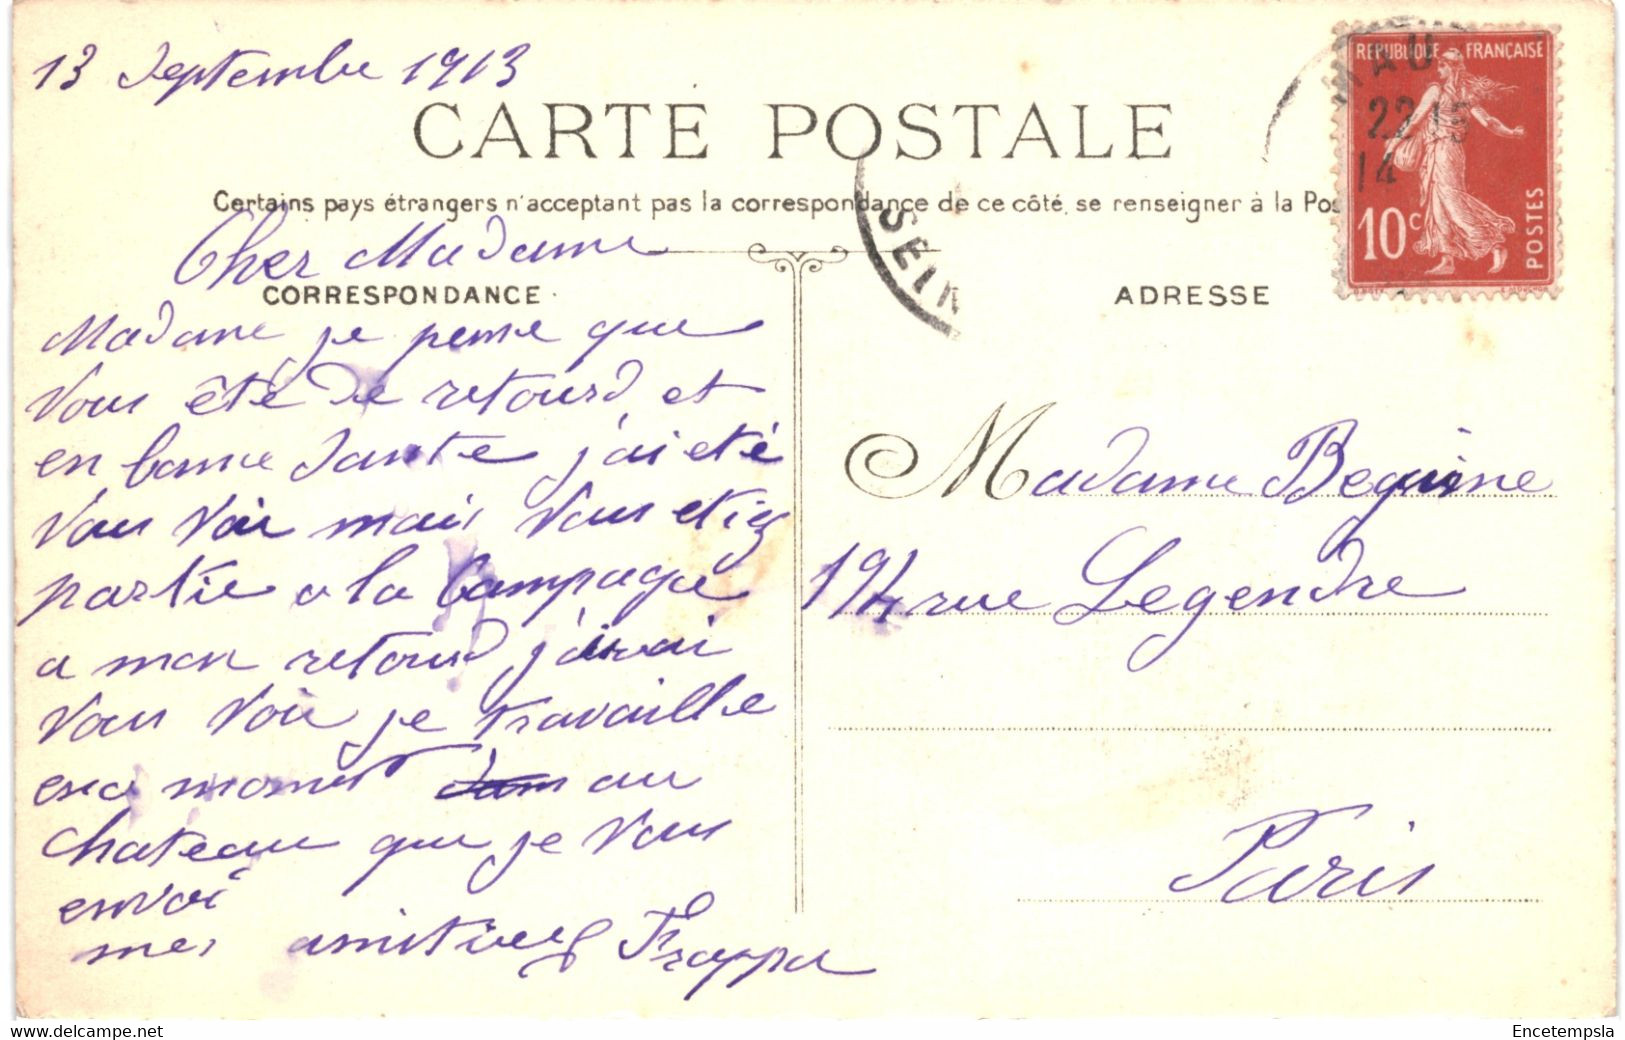 13 Septembre 1913
CARTE POSTALE
Certains pays étrangers n'acceptant pas la correspondance de ce côté, se renseigner à la Pos
Cher Madame
CORRESPONDANCE
Madame je pense que
vous été de retourd et
en bonne sante j'ai eté
vous voir mais vous etiez
partie a la Campagne
a mon retourd j'irai
vous voir je travaille
en ce moment dans au
chateau que je vous
envoi
mes amitiees Frappa
ADRESSE
Madame Beguine
194 rue Legendre
Paris
RÉPUBLIQUE FRANÇAISE
10c
POSTES
MAU
22 15
14
SEIN
Encetempsla
www.delcampe.net